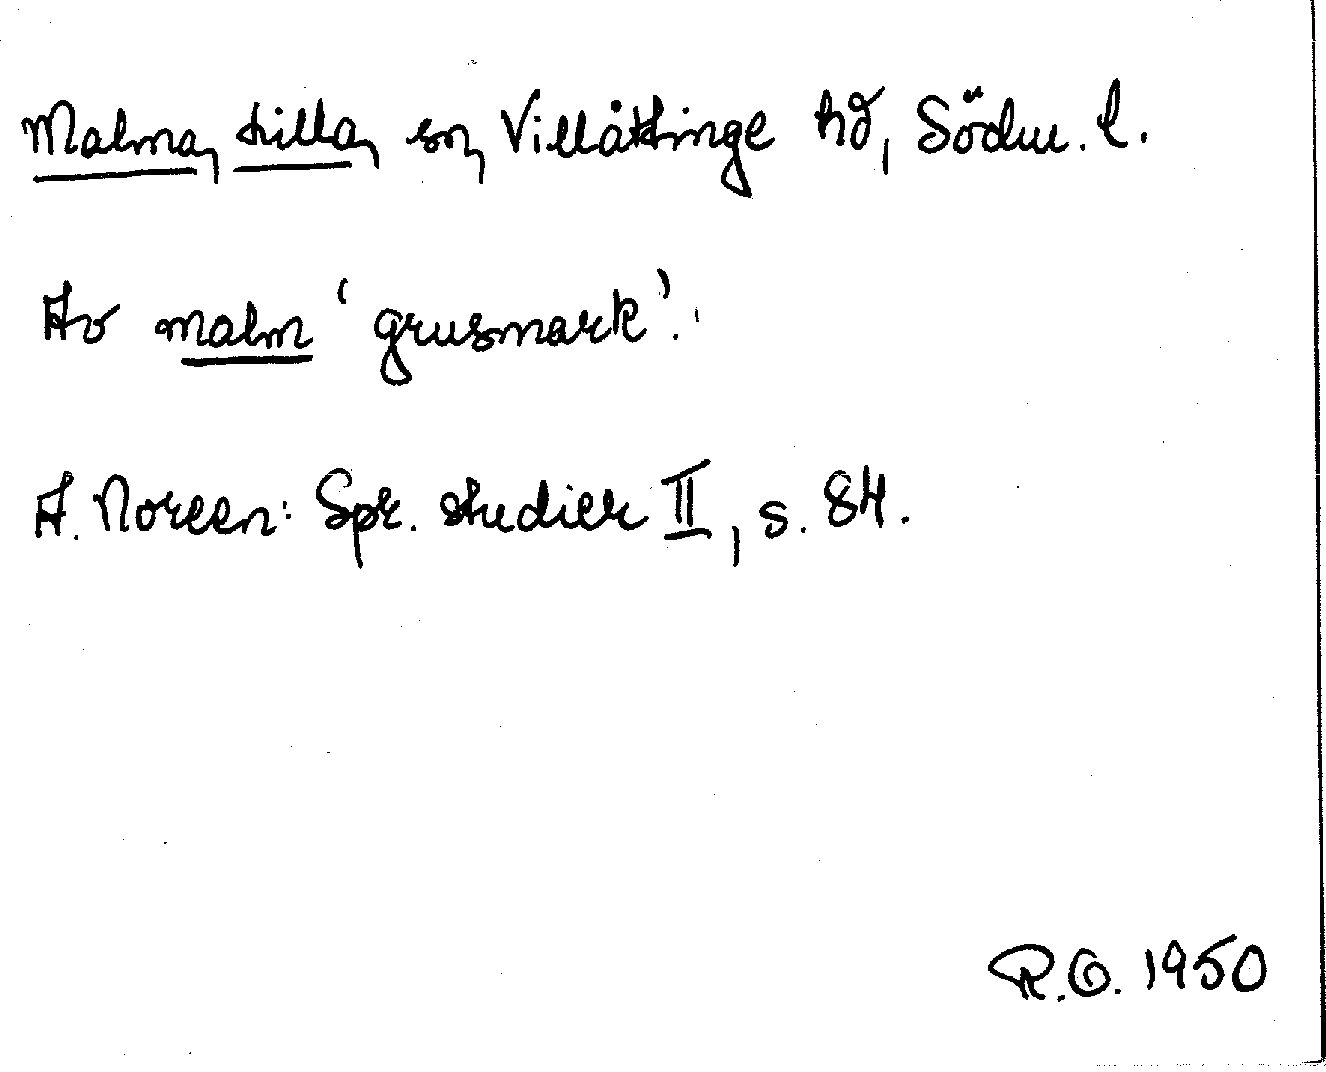 Malma, Lilla, sn, Villåttinge hd, Södm. l.
Av malm 'grusmark'.
A. Noreen: Spr. studier II, s. 84.
R.O. 1950